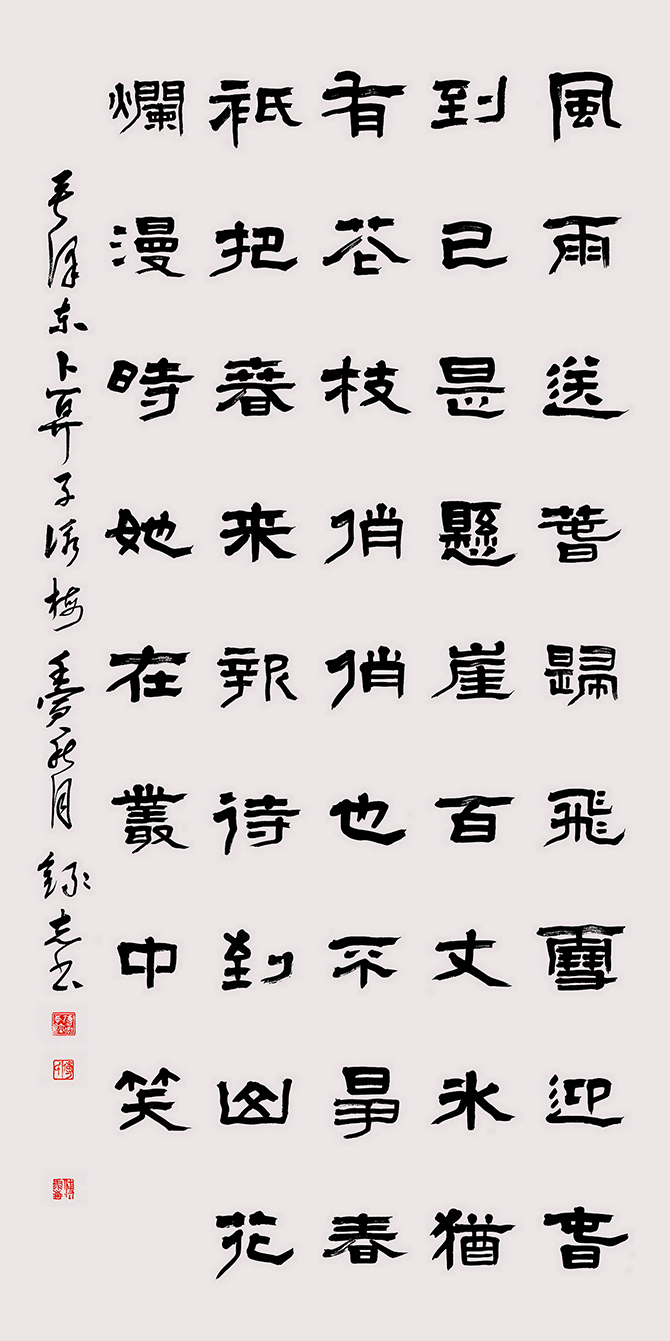 風雨送春歸飛雪迎春
到已是懸崖百丈氷猶
有花枝俏俏也不爭春
衹把春来報待到山花
爛漫時她在叢中笑
毛泽东卜算子咏梅 壬寅秋月 志书